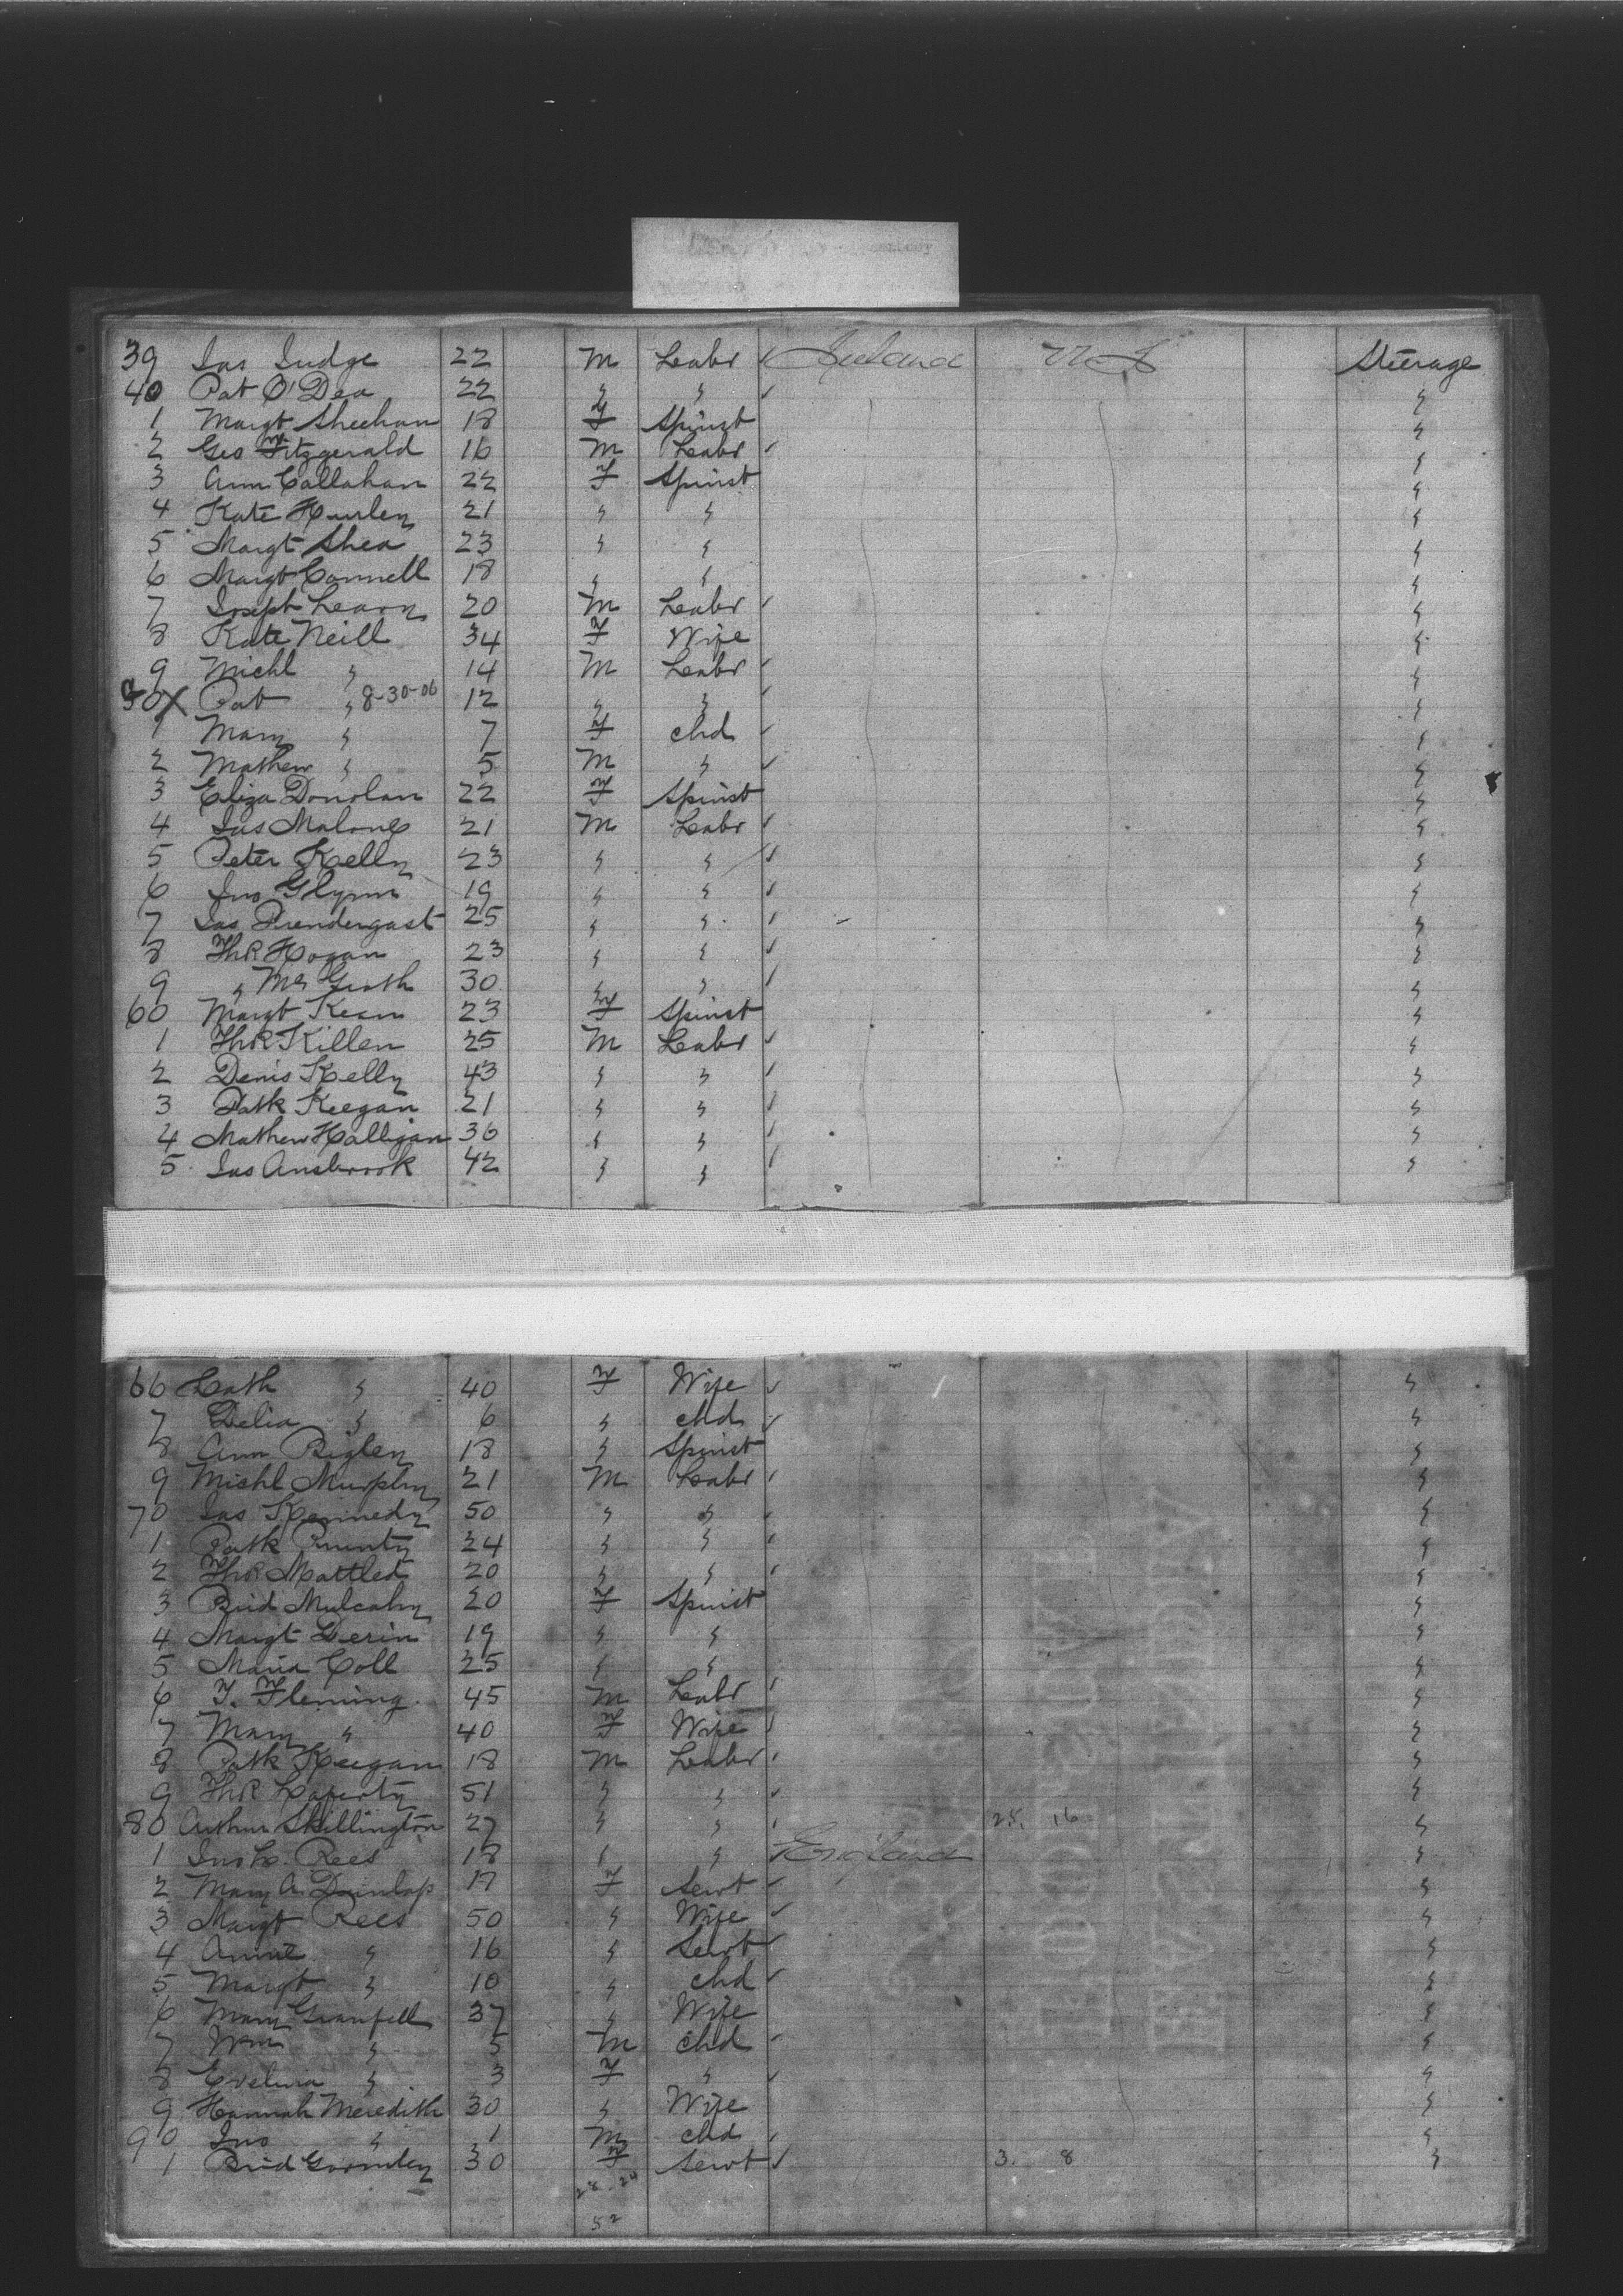 39 Jas Judge 22 M Labr ✓ Ireland U S Steerage
40 Pat O'Dea 22 " " ✓ "
1 Margt Sheehan 18 F Spinst "
2 Geo Fitzgerald 16 M Labr ✓ "
3 Ann Callahan 22 F Spinst "
4 Kate Hurley 21 " " "
5 Margt Shea 23 " " "
6 Margt Connell 18 " " "
7 Joseph Leary 20 M Labr ✓ "
8 Kate Neill 34 F Wife "
9 Michl " 14 M Labr ✓ "
50 X Pat " 8-30-06 12 " " ✓ "
1 Mary " 7 F chd ✓ "
2 Mathew " 5 M " ✓ "
3 Eliza Donolan 22 F Spinst "
4 Jas Malone 21 M Labr ✓ "
5 Peter Kelly 23 " " ✓ "
6 Jno Glynn 19 " " ✓ "
7 Jas Prendergast 25 " " ✓ "
8 Thos Hogan 23 " " ✓ "
9 " McGrath 30 " " ✓ "
60 Margt Kean 23 F Spinst "
1 Thos Killen 25 M Labr ✓ "
2 Denis Kelly 43 " " ✓ "
3 Patk Keegan 21 " " ✓ "
4 Mathew Halligan 36 " " ✓ "
5 Jas Ansbrook 42 " " ✓ "
66 Cath " 40 F Wife ✓ "
7 Delia " 6 " chd ✓ "
8 Ann Bigley 18 " Spinst "
9 Michl Murphy 21 M Labr ✓ "
70 Jas Kennedy 50 " " ✓ "
1 Patk Prunty 24 " " ✓ "
2 Thos 20 " " ✓ "
3 Brid Mulcahy 20 F Spinst "
4 Margt Derin 19 " " "
5 Maria Coll 25 " " "
6 T. Fleming 45 M Labr ✓ "
7 Mary " 40 F Wife ✓ "
8 Patk Keegan 18 M Labr ✓ "
9 Thos Laferty 51 " " ✓ "
80 Arthur Skillington 27 " " ✓ 28. 16 "
1 Jno L. Rees 18 " " England "
2 Mary A. Dunlap 17 F Servt ✓ "
3 Margt Rees 50 " Wife ✓ "
4 Annie " 16 " Servt ✓ "
5 Margt " 10 " chd ✓ "
6 Mary Granfell 37 " Wife "
7 Wm " 5 M chd ✓ "
8 Evelina " 3 F " ✓ "
9 Hannah Meredith 30 " Wife "
90 Jno " 1 M chd ✓ "
1 Brid Gormley 30 F Servt ✓ 3. 8 "
28 24
52